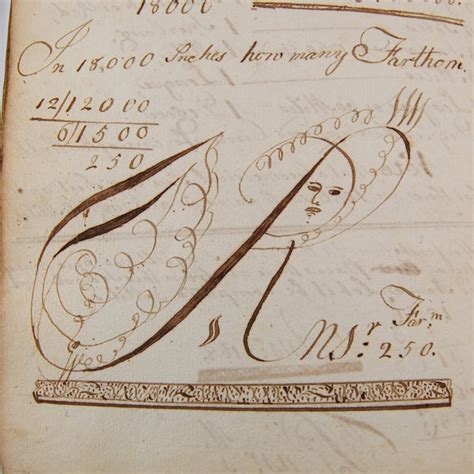 18000
In 18000 Inches how many Farthom.
12/12000
6/1500
250
Ansr: Farm
250.